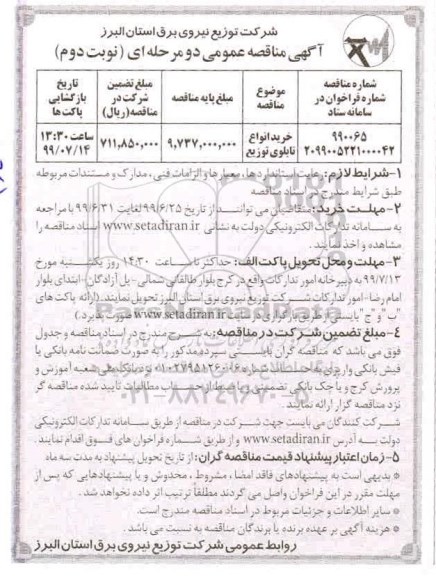 شرکت توزیع نیروی برق استان البرز
آگهی مناقصه عمومی دو مرحله ای (نوبت دوم)
شماره مناقصه شماره فراخوان در سامانه ستاد
موضوع مناقصه
مبلغ پایه مناقصه
مبلغ تضمین شرکت در مناقصه(ریال)
تاریخ بازگشایی پاکت ها
۹۹۰۰۶۵
۲۰۹۹۰۰۵۲۲۱۰۰۰۰۴۲
خرید انواع تابلوی توزیع
۹,۷۳۷,۰۰۰,۰۰۰
۷۱۱,۸۵۰,۰۰۰
ساعت ۱۳:۳۰
۹۹/۰۷/۱۴
۱-شرایط لازم: رعایت استانداردها، معیارها و الزامات فنی، مدارک و مستندات مربوطه
طبق شرایط مندرج در اسناد مناقصه
۲-مهلت خرید: متقاضیان می توانند از تاریخ ۹۹/۶/۲۵ لغایت ۹۹/۶/۳۱ با مراجعه
به سامانه تدارکات الکترونیکی دولت به نشانی www.setadiran.ir اسناد مناقصه را
مشاهده و اخذ نمایند.
۳-مهلت و محل تحویل پاکت الف: حداکثر تا ساعت ۱۴:۳۰ روز یکشنبه مورخ
۹۹/۷/۱۳ به دبیرخانه امور تدارکات واقع در کرج بلوار طالقانی شمالی-پل آزادگان-ابتدای بلوار
امام رضا-امور تدارکات شرکت توزیع نیروی برق استان البرز تحویل نمایند. (ارائه پاکت های
"ب" و "ج" بایستی با بارگزاری در سایت www.setadiran.ir صورت پذیرد)
۴-مبلغ تضمین شرکت در مناقصه: به شرح مندرج در اسناد مناقصه و جدول
فوق می باشد که مناقصه گران بایستی سپرده مذکور را به صورت ضمانت نامه بانکی یا
فیش بانکی واریزی به حساب شماره نزد بانک ملی شعبه آموزش و
پرورش کرج و یا چک بانکی تضمینی و یا ضبط از حساب مطالبات تایید شده مناقصه گر
نزد مناقصه گزار ارائه نمایند.
شرکت کنندگان می بایست جهت شرکت در مناقصه از طریق سامانه تدارکات الکترونیکی
دولت به آدرس www.setadiran.ir و از طریق شماره فراخوان های فوق اقدام نمایند.
۵-زمان اعتبار پیشنهاد قیمت مناقصه گران: از تاریخ تحویل پیشنهاد به مدت سه ماه
* بدیهی است به پیشنهادهای فاقد امضا، مشروط، مخدوش و یا پیشنهادهایی که پس از
مهلت مقرر در این فراخوان واصل می گردند مطلقاً ترتیب اثر داده نخواهد شد.
* سایر اطلاعات و جزئیات مربوط در اسناد مناقصه مندرج است.
* هزینه آگهی بر عهده برنده یا برندگان مناقصه به نسبت می باشد.
روابط عمومی شرکت توزیع نیروی برق استان البرز
۰۲۱-۸۸۳۴۹۶۷۰-۵